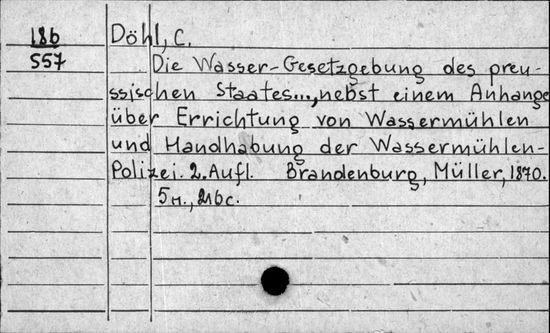 18b Döhl, C.
S57
Die Wasser-Gesetzgebung des preu-
ssischen Staates..., nebst einem Anhange
über Errichtung von Wassermühlen
und Handhabung der Wassermühlen-
Polizei. 2. Aufl. Brandenburg, Müller, 1870.
5н., 216с.